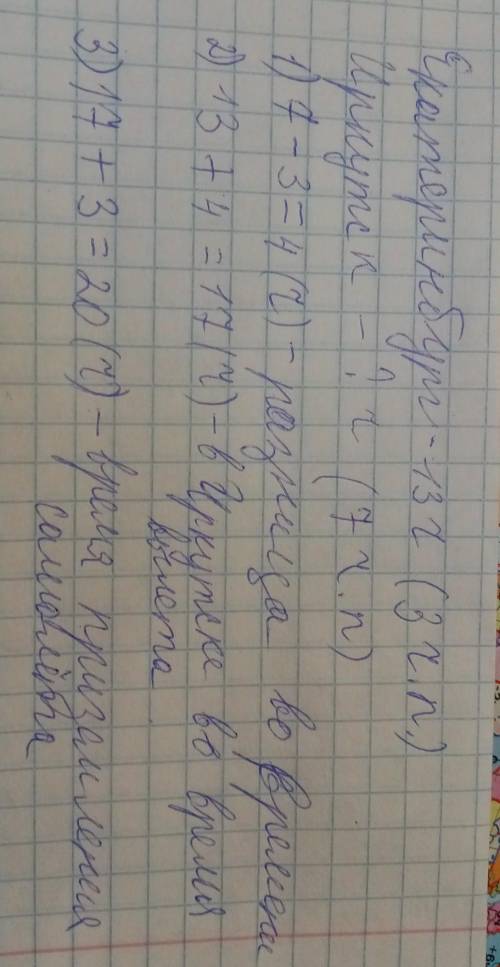 Екатеринбург - 13 ч (3 ч.п.)
Иркутск - ? ч (7 ч.п)
1) 7 - 3 = 4 (ч) - разница во времени
2) 13 + 4 = 17 (ч) - в Иркутске во время
вылета
3) 17 + 3 = 20 (ч) - время призамления
самолёта